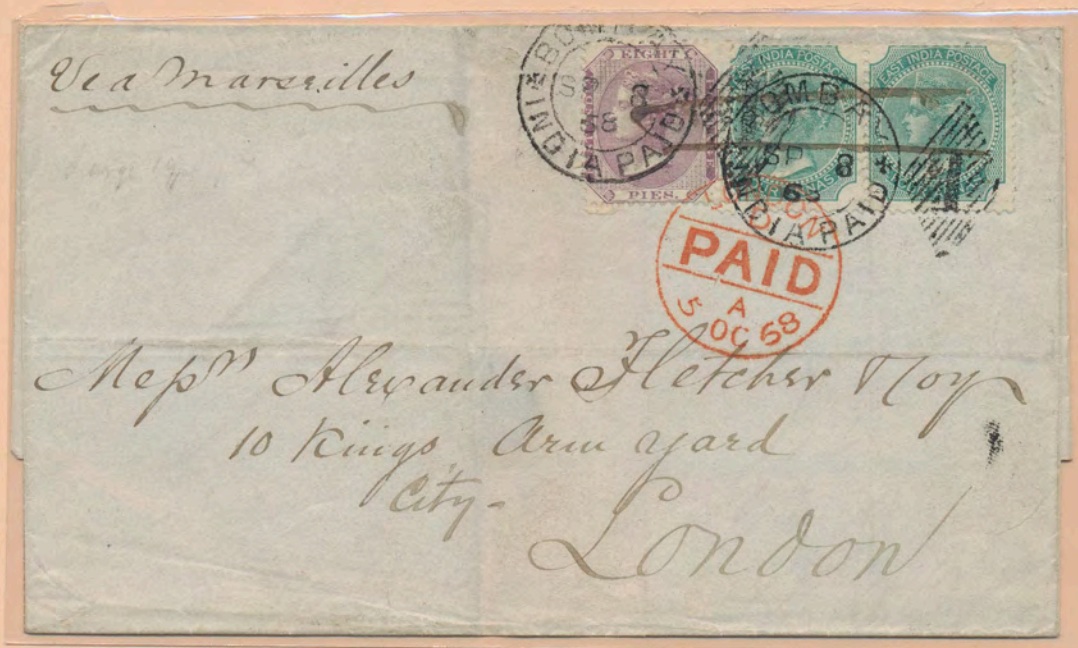 Via Marseilles
BOMBAY
SP 8
68
INDIA PAID
EIGHT
PIES.
EAST INDIA POSTAGE
EAST INDIA POSTAGE
BOMBAY
SP 8
68
INDIA PAID
1
LONDON
PAID
A
5 OC 68
Messrs Alexander Fletcher & Coy
10 Kings Arm yard
City-
London